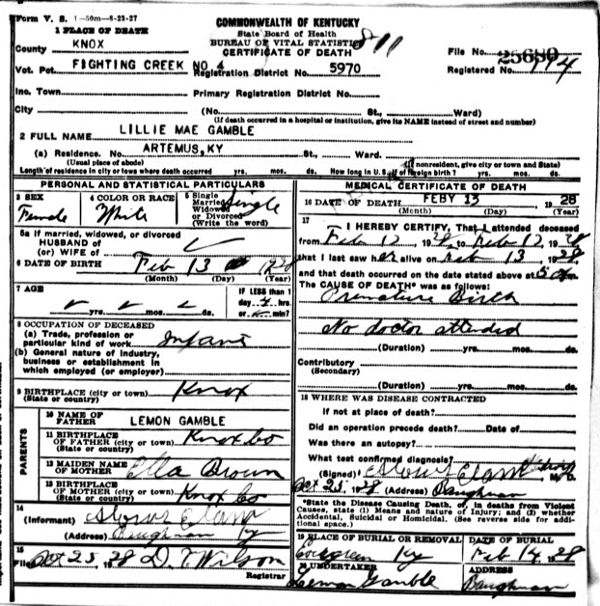 Form V. S. 1-50m-8-23-27
COMMONWEALTH OF KENTUCKY
State Board of Health
BUREAU OF VITAL STATISTICS
CERTIFICATE OF DEATH
811
1 PLACE OF DEATH
County KNOX
File No. 25680
Vot. Pct. FIGHTING CREEK NO 4 Registration District No. 5970 Registered No. 114
Inc. Town Primary Registration District No.
City (No. St., Ward)
(If death occurred in a hospital or institution, give its NAME instead of street and number)
2 FULL NAME LILLIE MAE GAMBLE
(a) Residence. No. ARTEMUS, KY St., Ward.
(Usual place of abode) (If nonresident, give city or town and State)
Length of residence in city or town where death occurred yrs. mos. ds. How long in U.S., if of foreign birth? yrs. mos. ds.
PERSONAL AND STATISTICAL PARTICULARS
3 SEX Female
4 COLOR OR RACE White
5 Single Married Widowed or Divorced (Write the word) Single
5a If married, widowed, or divorced
HUSBAND of
(or) WIFE of
6 DATE OF BIRTH Feb 13
(Month) (Day) (Year)
7 AGE
yrs. mos. ds.
IF LESS than 1
day 4 hrs.
or min?
8 OCCUPATION OF DECEASED
(a) Trade, profession or
particular kind of work Infant
(b) General nature of industry,
business or establishment in
which employed (or employer)
9 BIRTHPLACE (city or town) Knox
(State or country)
PARENTS
10 NAME OF
FATHER LEMON GAMBLE
11 BIRTHPLACE
OF FATHER (city or town) Knox Co
(State or country)
12 MAIDEN NAME
OF MOTHER Ella Brown
13 BIRTHPLACE
OF MOTHER (city or town) Knox Co
(State or country)
14
(Informant)
(Address) Baughman Ky
15
Filed Oct 25, 28 D. T. Wilson
Registrar
MEDICAL CERTIFICATE OF DEATH
16 DATE OF DEATH FEBY 13 1928
(Month) (Day) (Year)
17
I HEREBY CERTIFY, That I attended deceased
from Feb 12, 1928, to Feb 12, 1928
that I last saw her alive on Feb 13, 1928
and that death occurred on the date stated above at 5
The CAUSE OF DEATH* was as follows:
Premature Birth
No doctor attended
(Duration) yrs. mos. ds.
Contributory
(Secondary)
(Duration) yrs. mos. ds.
18 WHERE WAS DISEASE CONTRACTED
If not at place of death?
Did an operation precede death? Date of
Was there an autopsy?
What test confirmed diagnosis?
(Signed) M. D.
Oct 25, 1928 (Address) Baughman
*State the Disease Causing Death, or, in deaths from Violent
Causes, state (1) Means and nature of Injury; and (2) whether
Accidental, Suicidal or Homicidal. (See reverse side for addi-
tional space.)
19 PLACE OF BURIAL OR REMOVAL
Evergreen Ky
DATE OF BURIAL
Feb 14, 28
20 UNDERTAKER
Lemon Gamble
ADDRESS
Baughman